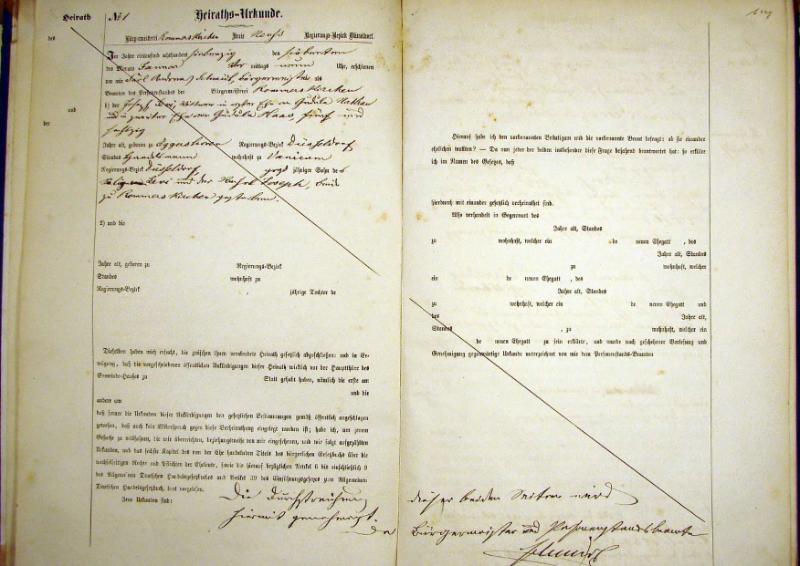 Heirath
des
und
der
№ 1
Heiraths-Urkunde.
Bürgermeisterei Rommerskirchen Kreis Neuss Regierungs-Bezirk Düsseldorf.
Im Jahre eintausend achthundert siebenzig den siebenten
des Monats Januar Vormittags neun Uhr, erschienen
vor mir Carl Andreas Schmitz, Bürgermeister als
Beamten des Personenstandes der Bürgermeisterei Rommerskirchen
1) der Joseph Levi, Wittwer in erster Ehe von Gudula Nathan
und in zweiter Ehe von Gudula Haas, fünf und
sechszig
Jahre alt, geboren zu Regierungs-Bezirk Düsseldorf
Standes Handelsmann wohnhaft zu Vanicum
Regierungs-Bezirk Düsseldorf groß jähriger Sohn des
Levi und der Joseph, beide
zu Rommerskirchen gestorben.
2) und die
Jahre alt, geboren zu Regierungs-Bezirk
Standes wohnhaft zu
Regierungs-Bezirk jährige Tochter de
Dieselben haben mich ersucht, die zwischen ihnen verabredete Heirath gesetzlich abzuschließen: und in Er-
wägung, daß die vorgeschriebenen öffentlichen Ankündigungen dieser Heirath wirklich vor der Hauptthüre des
Gemeinde-Hauses zu Statt gehabt haben, nämlich die erste am
und die
andere am
daß ferner die Urkunden dieser Ankündigungen den gesetzlichen Bestimmungen gemäß öffentlich angeschlagen
gewesen, daß auch kein Widerspruch gegen diese Verheirathung eingelegt worden ist; habe ich, um jenem
Gesuche zu willfahren, die mir überreichten, beziehungsweise von mir eingesehenen, und wie folgt aufgezählten
Urkunden, und das sechste Kapitel des von der Ehe handelnden Titels des bürgerlichen Gesetzbuchs über die
wechselseitigen Rechte und Pflichten der Eheleute, sowie die hierauf bezüglichen Artikel 6 bis einschließlich 9
des Allgemeinen Deutschen Handelsgesetzbuches und Artikel 39 des Einführungsgesetzes zum Allgemeinen
Deutschen Handelsgesetzbuch, laut vorgelesen.
Jene Urkunden sind:
Die Durchstreichung
hiermit genehmigt.
Hierauf habe ich den vorbenannten Bräutigam und die vorbenannte Braut befragt: ob sie einander
ehelichen wollten? — Da nun jeder der beiden insbesondere diese Frage bejahend beantwortet hat: so erkläre
ich im Namen des Gesetzes, daß
hierdurch mit einander gesetzlich verheirathet sind.
Also verhandelt in Gegenwart des
Jahre alt, Standes
zu wohnhaft, welcher ein de neuen Ehegatt , des
Jahre alt, Standes
zu wohnhaft, welcher
ein de neuen Ehegatt , des
Jahre alt, Standes
zu wohnhaft, welcher ein de neuen Ehegatt und
des Jahre alt,
Standes , zu wohnhaft, welcher ein
de neuen Ehegatt zu sein erklärte, und wurde nach geschehener Vorlesung und
Genehmigung gegenwärtige Urkunde unterzeichnet von mir dem Personenstands-Beamten
dieser beiden Seiten wird
Der Bürgermeister und Personenstandsbeamte
Schmitz